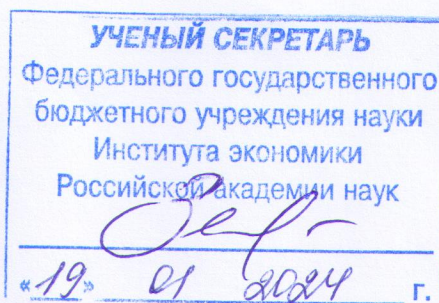 УЧЕНЫЙ СЕКРЕТАРЬ
Федерального государственного
бюджетного учреждения науки
Института экономики
Российской академии наук
«19» 01 2024 г.